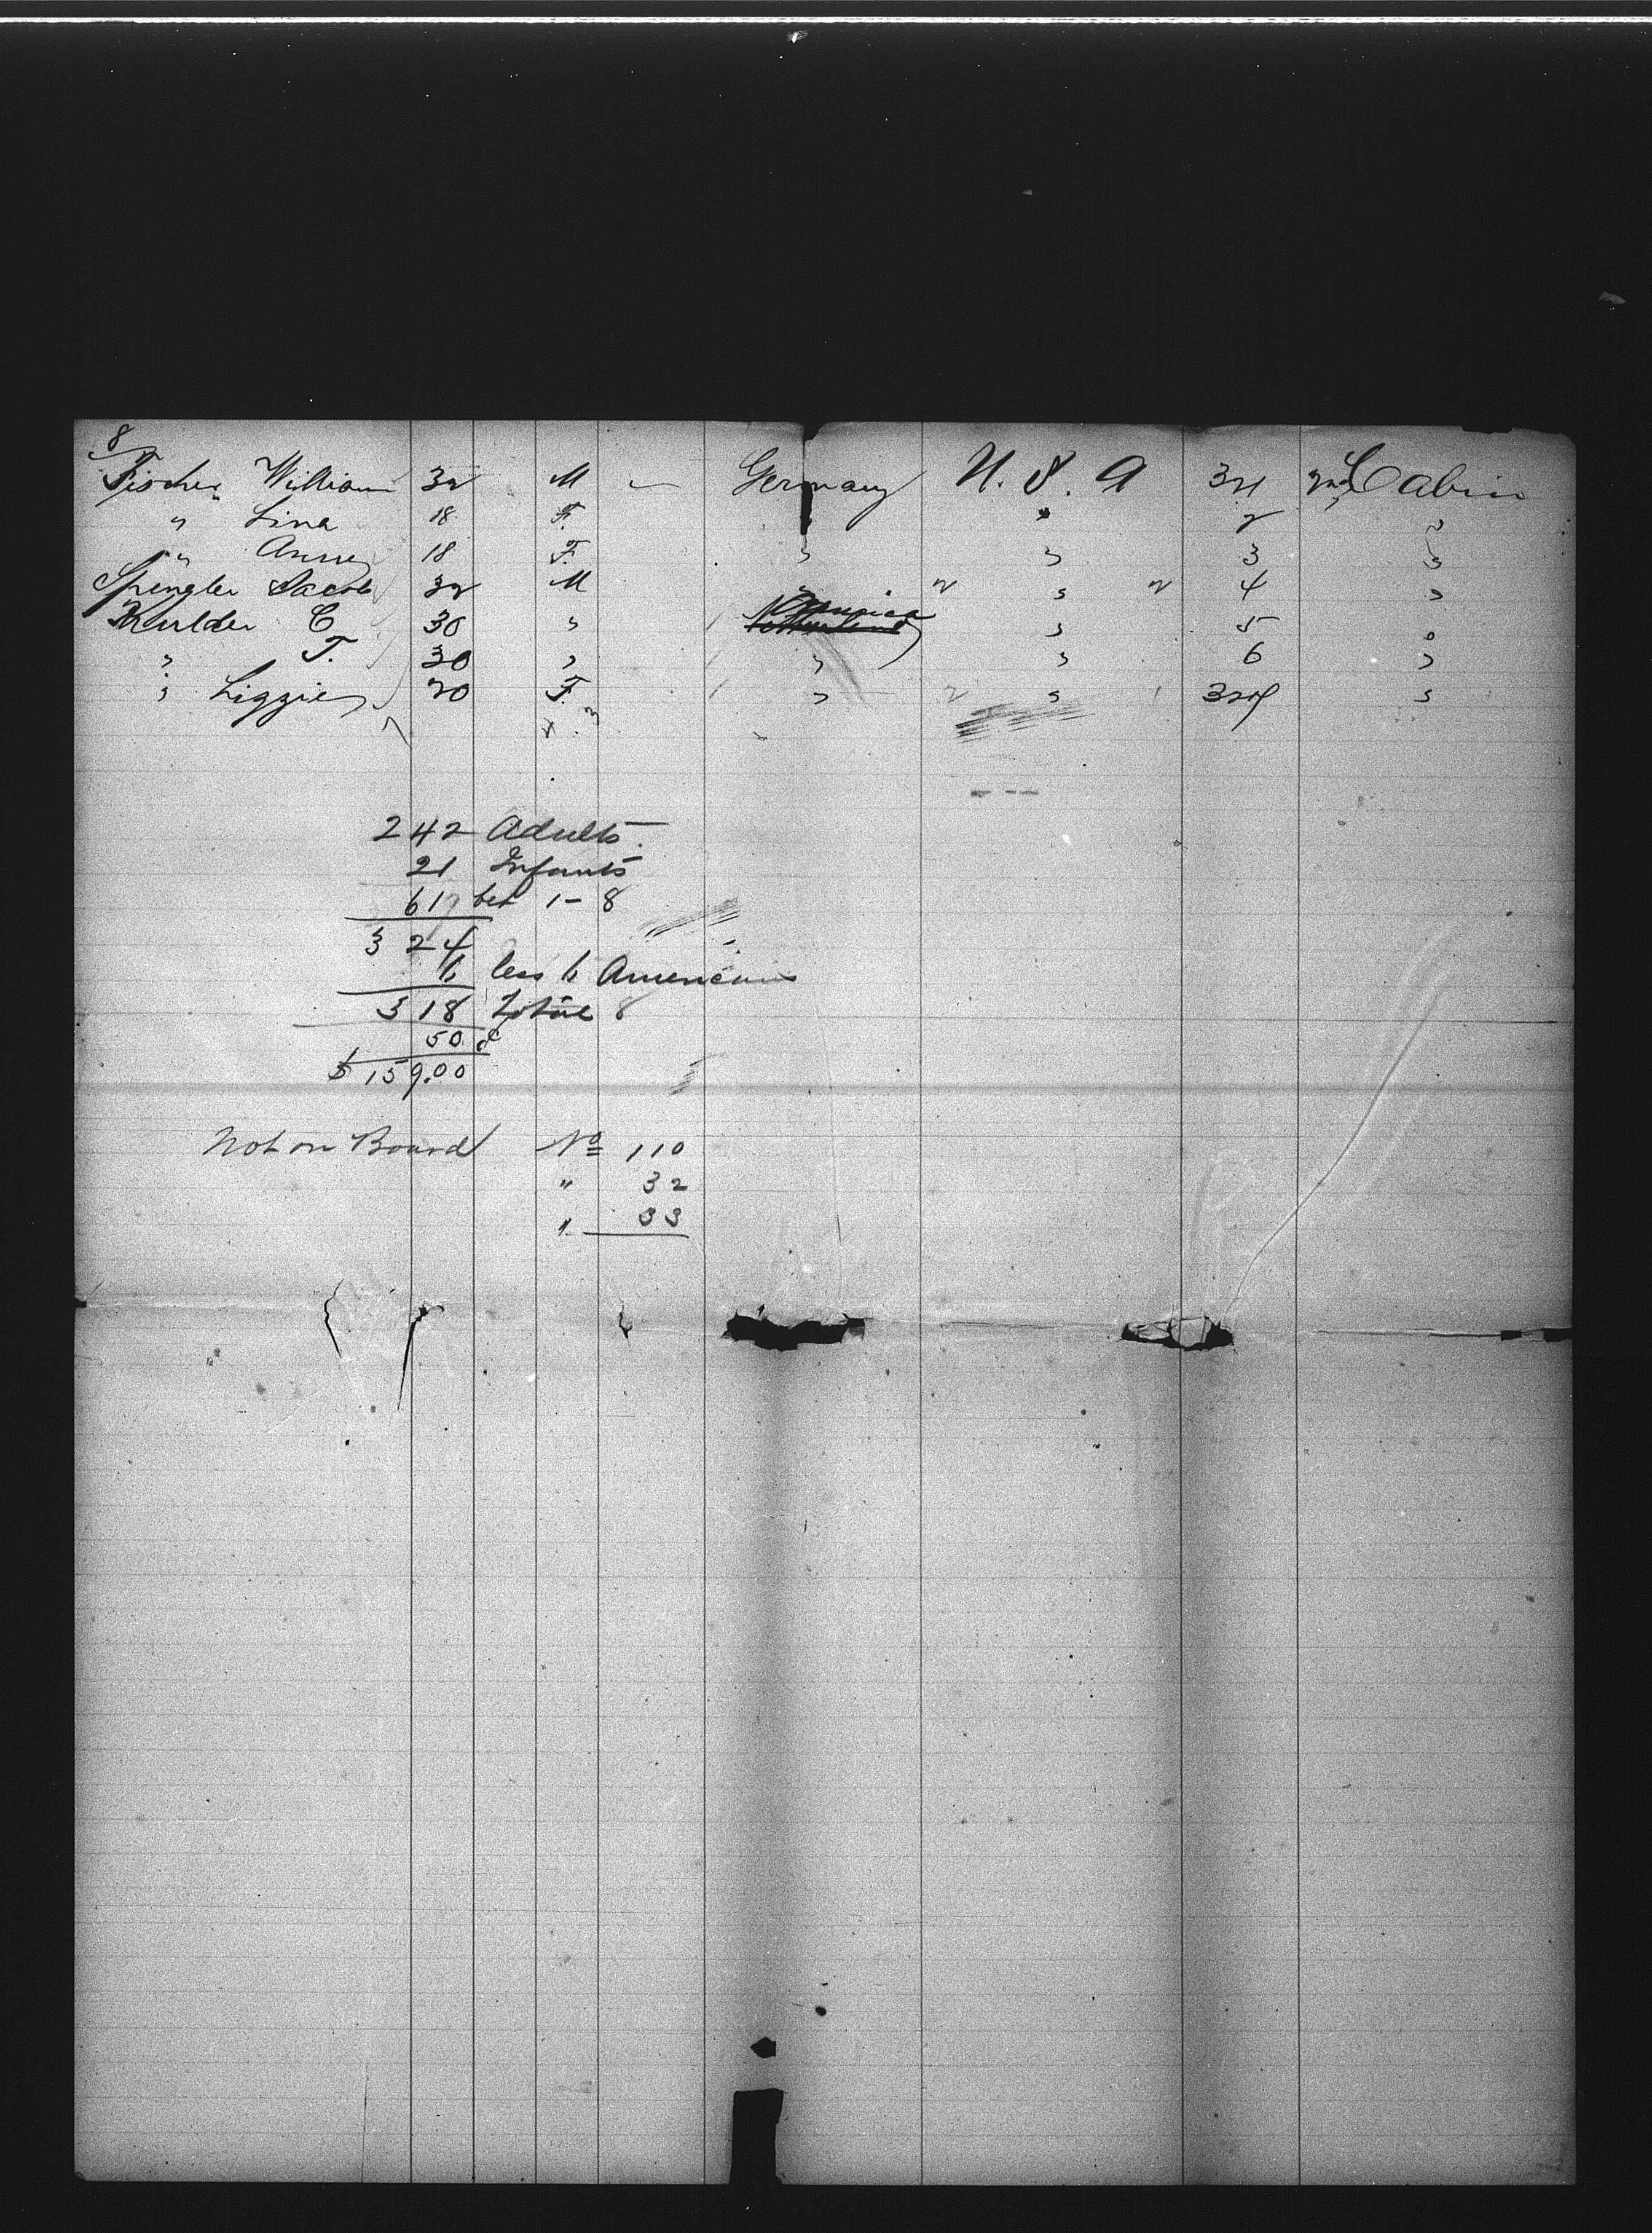 8
Fischer William 32 M Germany U.S.A 321 2nd Cabin
" Lina 18 F. " 2 "
" Anne 18 F. " " 3 "
Spengler Jacob 32 M " " 4 "
Mulder C 30 " America " 5 "
" T. 30 " " " 6 "
" Lizzie 20 F. " " 327 "
242 Adults
21 Infants
61 bet 1-8
324
6 less 6 Americans
318 Total
50 c
$159.00
Not on Board No 110
" 32
" 33